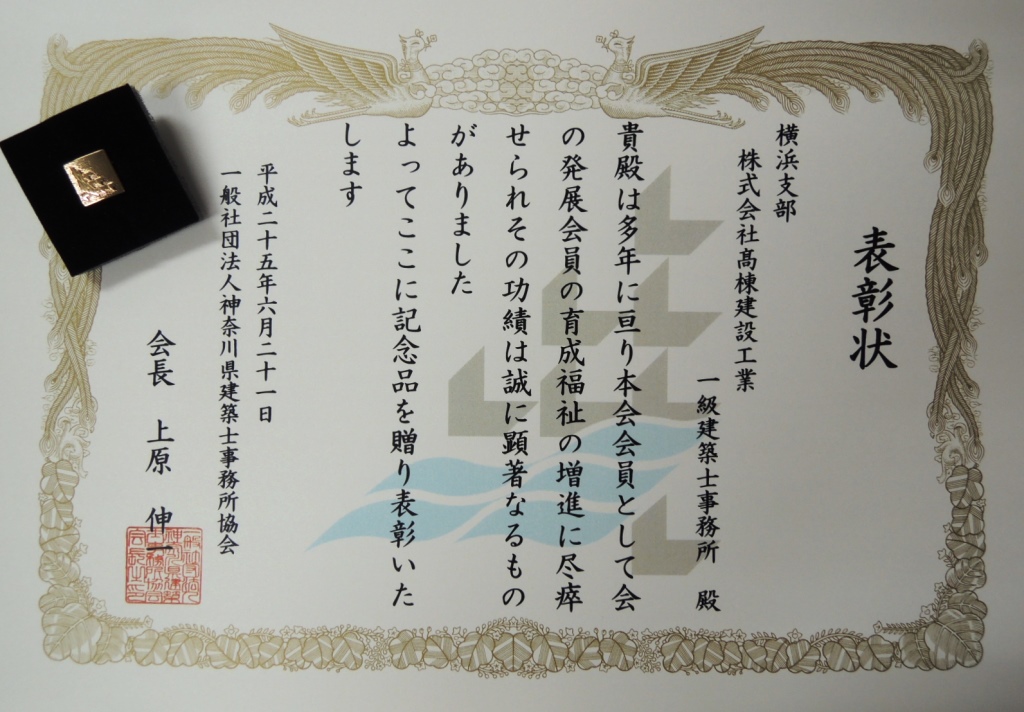 表彰状
横浜支部
株式会社髙棟建設工業
一級建築士事務所 殿
貴殿は多年に亘り本会会員として会
の発展会員の育成福祉の増進に尽瘁
せられその功績は誠に顕著なるもの
がありました
よってここに記念品を贈り表彰いた
します
平成二十五年六月二十一日
一般社団法人神奈川県建築士事務所協会
会長 上原 伸一